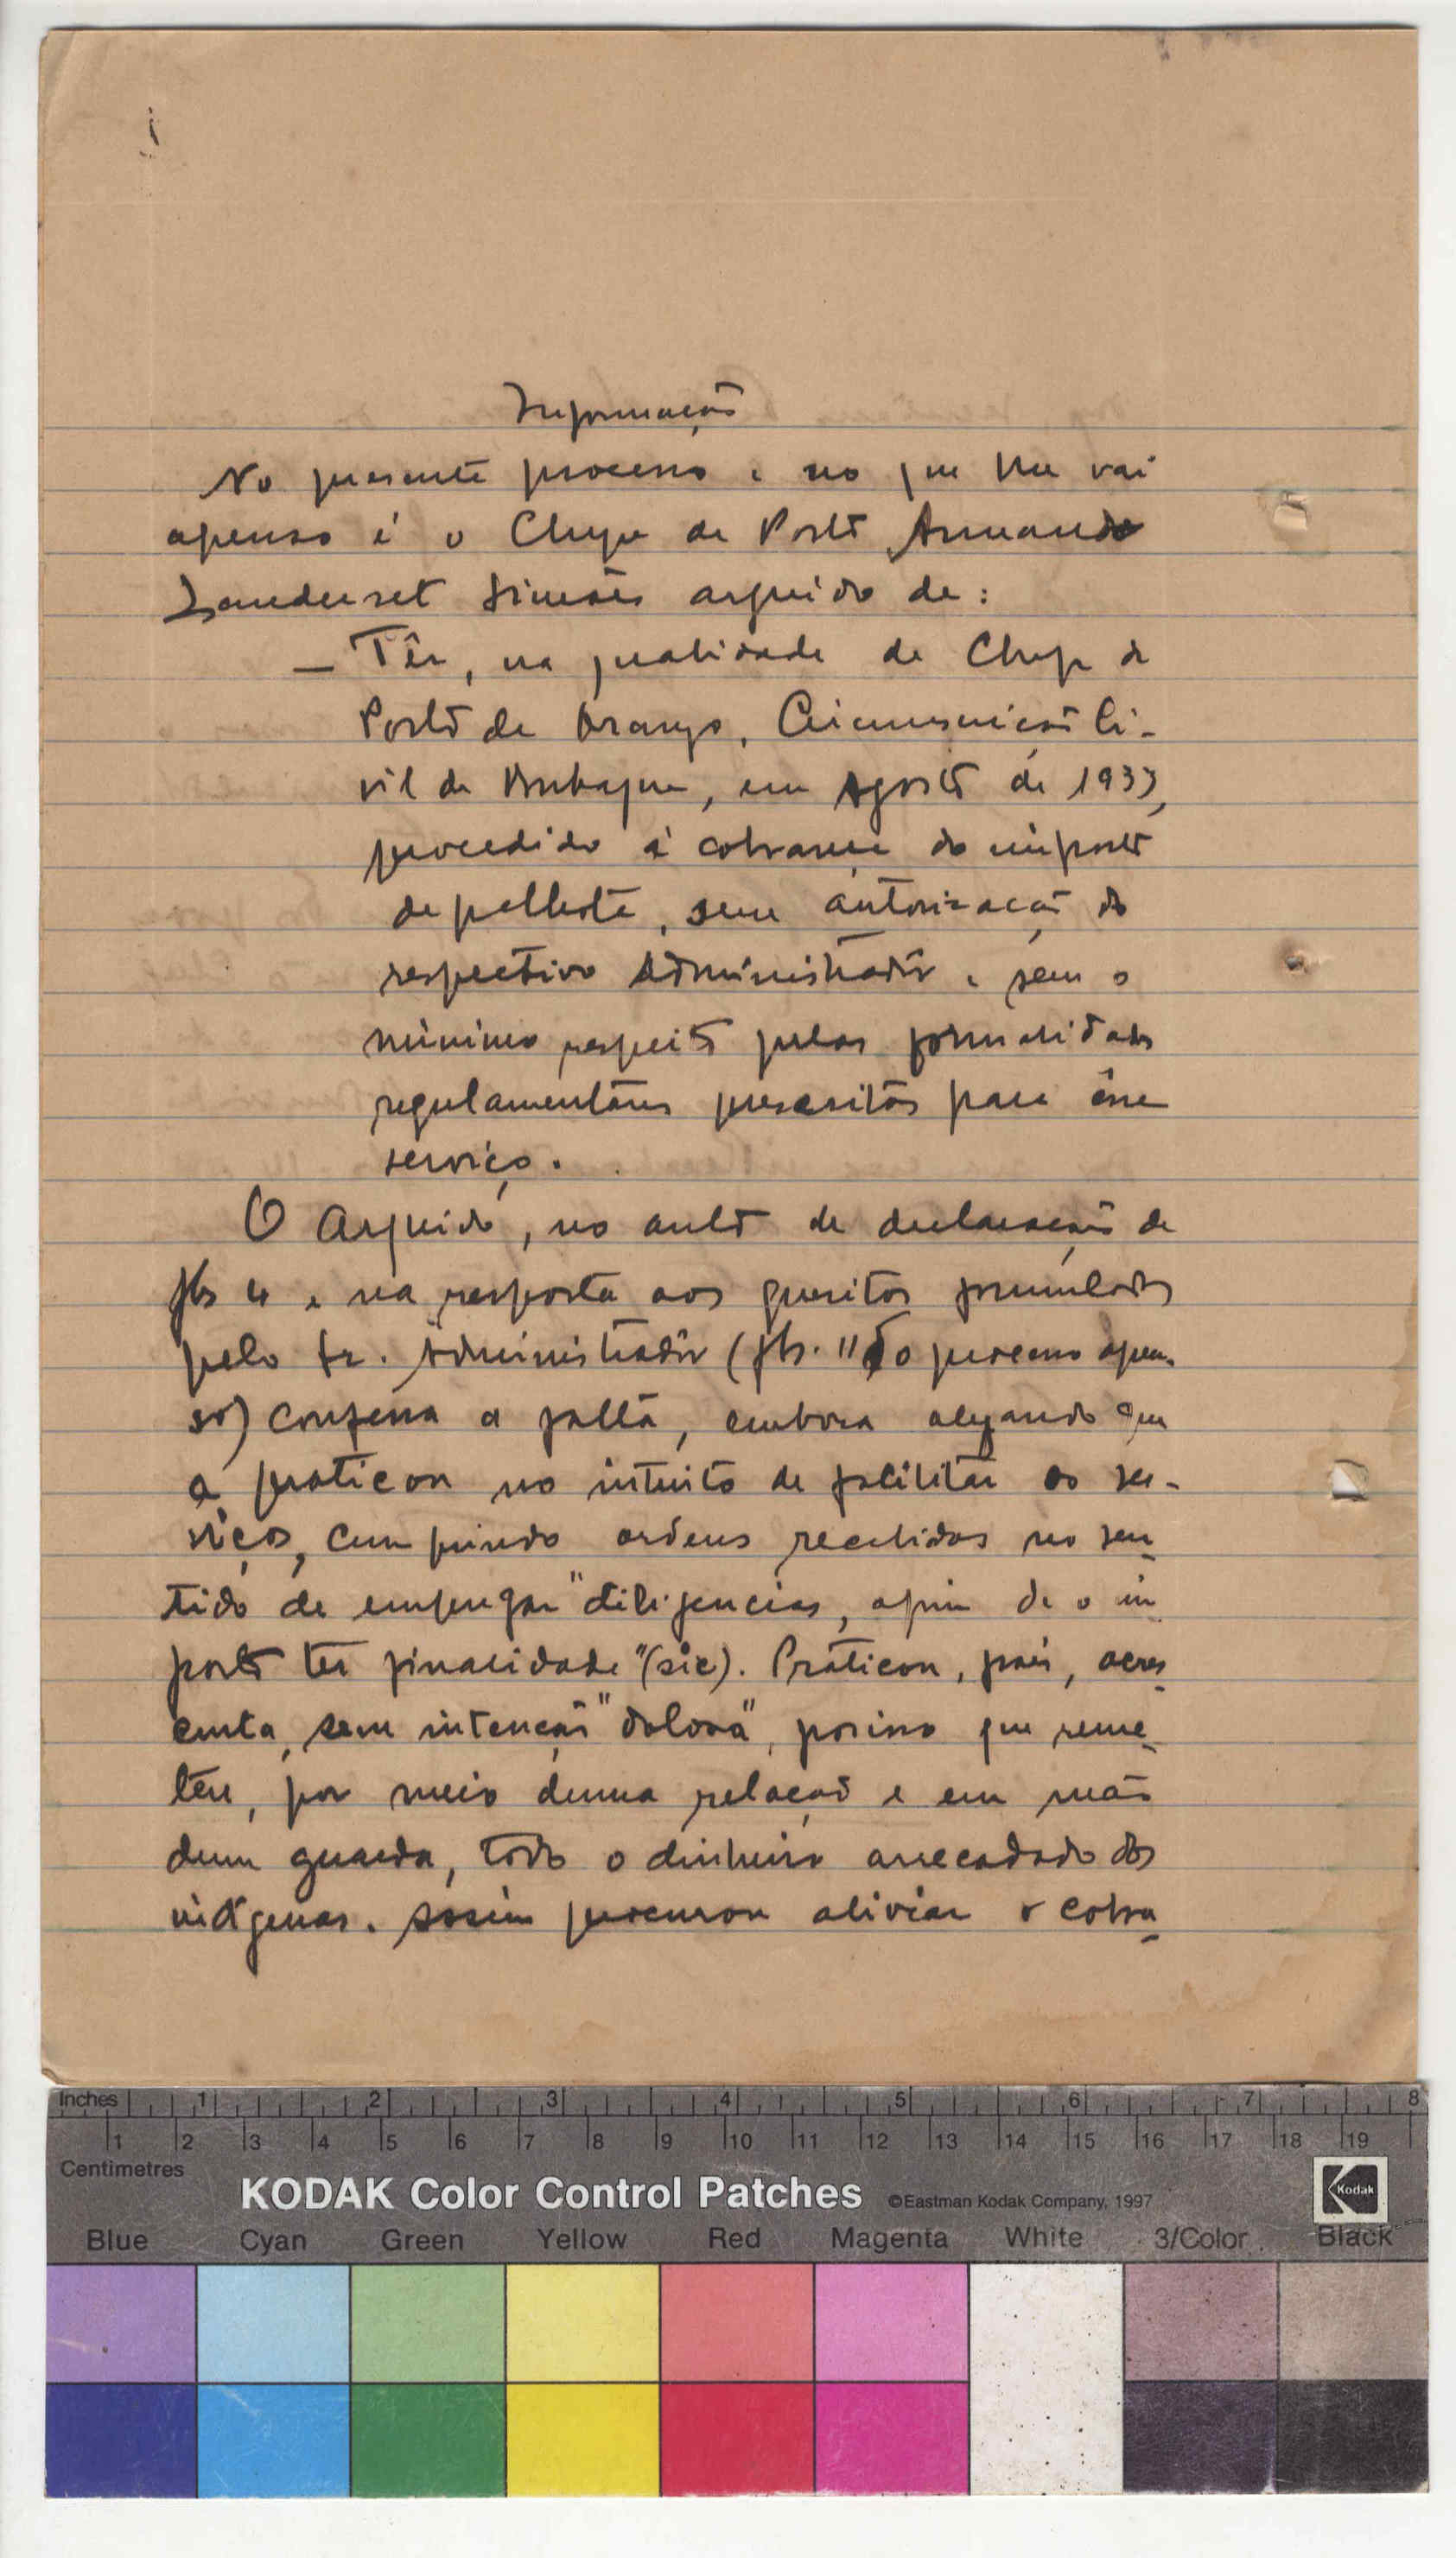 Informação
No presente processo e no que lhe vai
apenso é o Chefe de Posto Armando
Landerset Simões arguido de:
— Têr, na qualidade de Chefe de
Posto de Orango, Circunscrição Ci-
vil de Bubaque, em Agosto de 1933,
procedido à cobrança do imposto
de palhota, sem autorização do
respectivo Administradôr e sem o
minimo respeito pelas formalidades
regulamentares prescritas para êsse
serviço.
O arguido, no auto de declarações de
fls 4 e na resposta aos quesitos formulados
pelo Sr. Administradôr (fls. 11 do processo apen-
so) confessa a falta, embora alegando que
a praticou no intuito de facilitar os ser-
viços, cumprindo ordens recebidas no sen-
tido de empregar "diligencias, afim de o im-
posto ter finalidade" (sic). Praticou, pois, acres-
centa, sem intenção "dolosa", porisso que reme-
teu, por meio duma relação e em mão
dum guarda, todo o dinheiro arrecadado dos
indigenas. Assim procurou aliviar a cobra-
Inches 1 2 3 4 5 6 7 8
1 2 3 4 5 6 7 8 9 10 11 12 13 14 15 16 17 18 19
Centimetres
KODAK Color Control Patches ©Eastman Kodak Company, 1997
Kodak
Blue Cyan Green Yellow Red Magenta White 3/Color Black